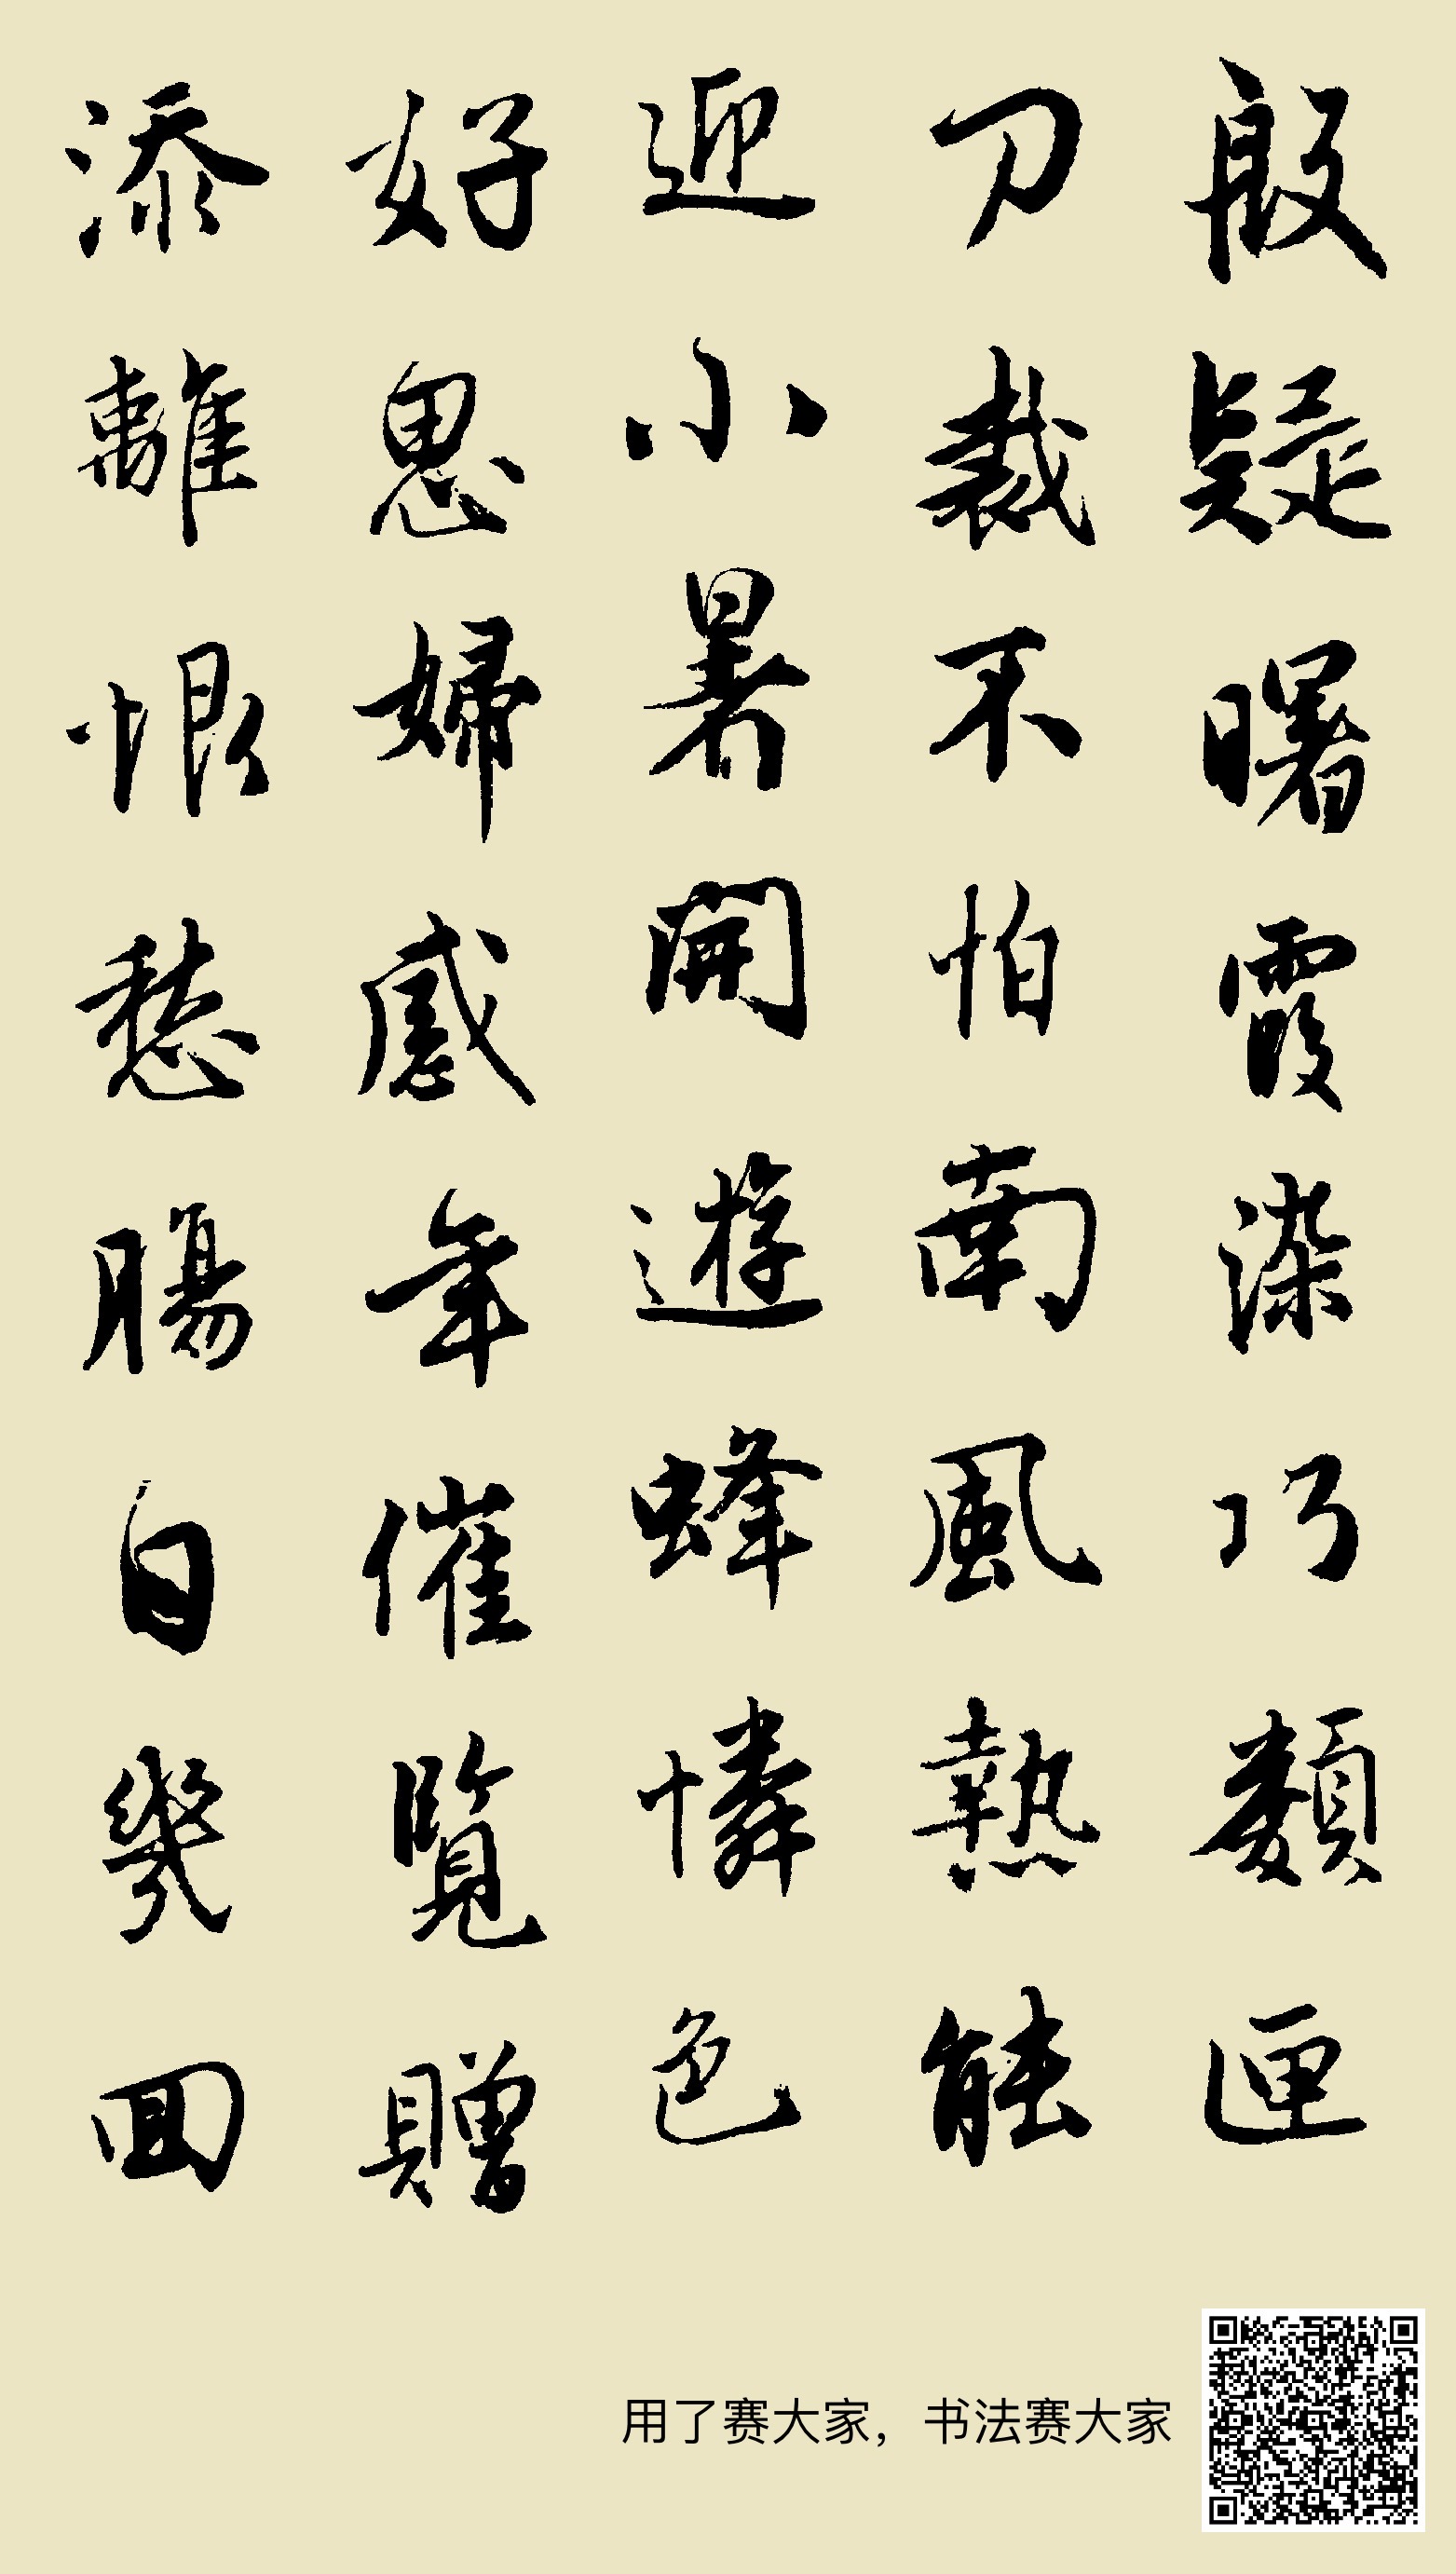 殷疑曙霞染巧類匣
刀裁不怕南風熱能
迎小暑開遊蜂憐色
好思婦感年催覽贈
添離恨愁腸日幾回
用了赛大家，书法赛大家